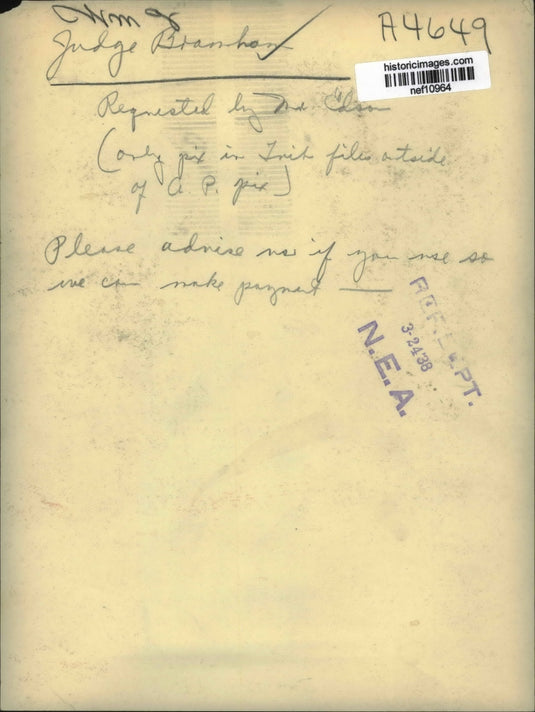 Wm G
Judge Bramham
A4649
historicimages.com
nef10964
Requested by Mr. Edson
(only pix in Trib files outside
of A. P. pix)
Please advise us if you use so
we can make payment —
3-24-38
N.E.A.